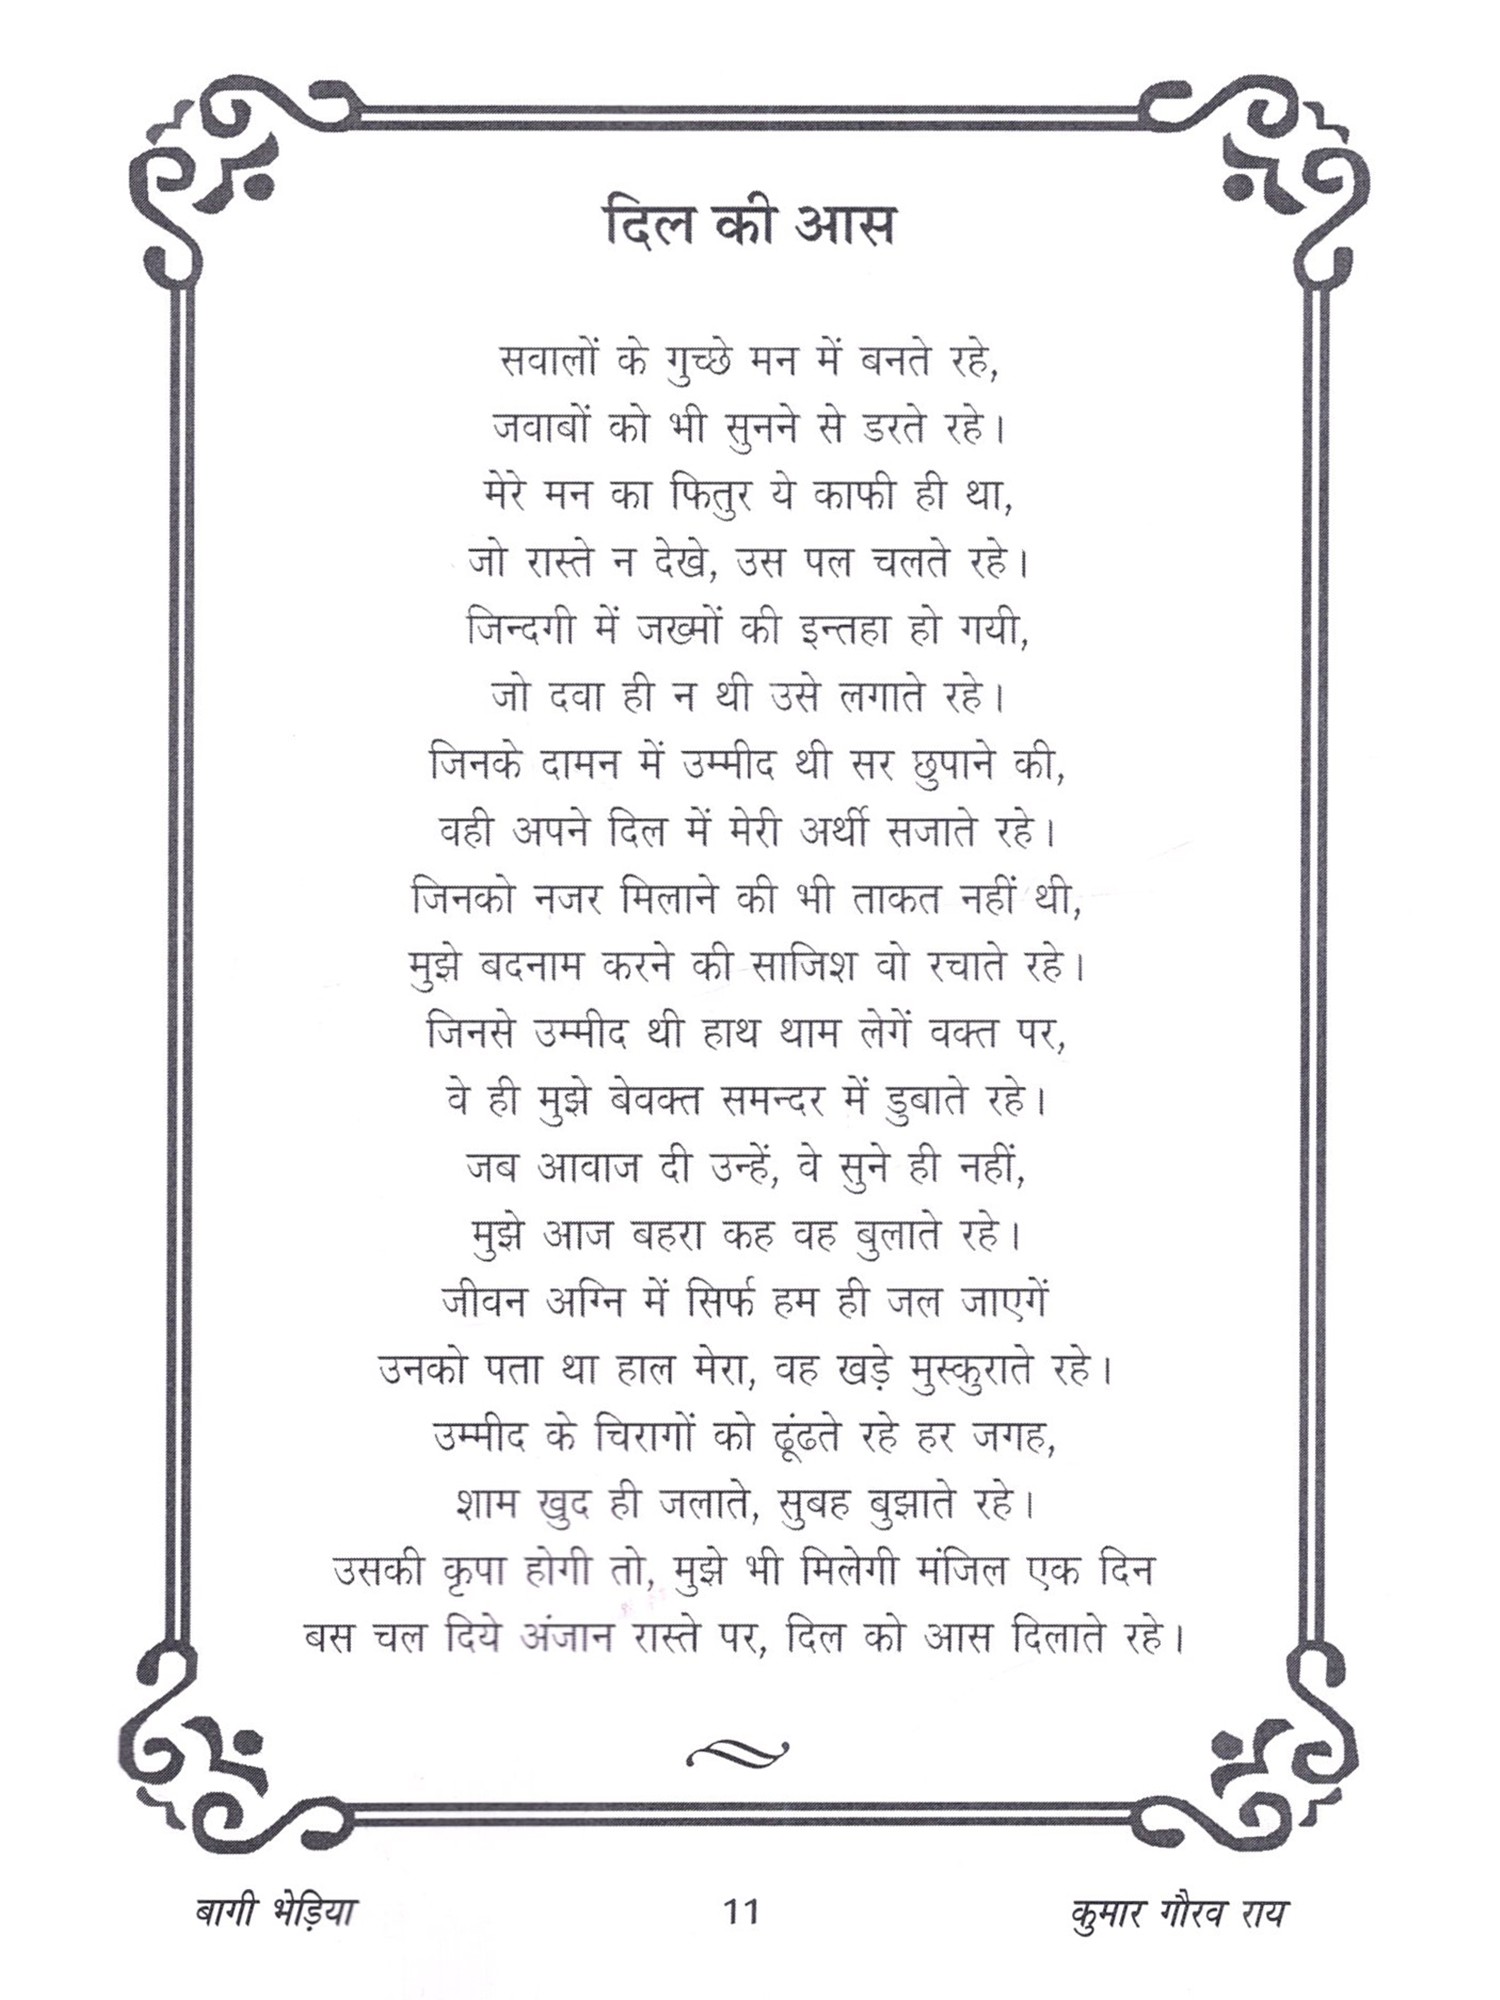 दिल की आस
सवालों के गुच्छे मन में बनते रहे,
जवाबों को भी सुनने से डरते रहे।
मेरे मन का फितुर ये काफी ही था,
जो रास्ते न देखे, उस पल चलते रहे।
जिन्दगी में जख्मों की इन्तहा हो गयी,
जो दवा ही न थी उसे लगाते रहे।
जिनके दामन में उम्मीद थी सर छुपाने की,
वही अपने दिल में मेरी अर्थी सजाते रहे।
जिनको नजर मिलाने की भी ताकत नहीं थी,
मुझे बदनाम करने की साजिश वो रचाते रहे।
जिनसे उम्मीद थी हाथ थाम लेगें वक्त पर,
वे ही मुझे बेवक्त समन्दर में डुबाते रहे।
जब आवाज दी उन्हें, वे सुने ही नहीं,
मुझे आज बहरा कह वह बुलाते रहे।
जीवन अग्नि में सिर्फ हम ही जल जाएगें
उनको पता था हाल मेरा, वह खड़े मुस्कुराते रहे।
उम्मीद के चिरागों को ढूंढते रहे हर जगह,
शाम खुद ही जलाते, सुबह बुझाते रहे।
उसकी कृपा होगी तो, मुझे भी मिलेगी मंजिल एक दिन
बस चल दिये अंजान रास्ते पर, दिल को आस दिलाते रहे।
बागी भेड़िया 11 कुमार गौरव राय